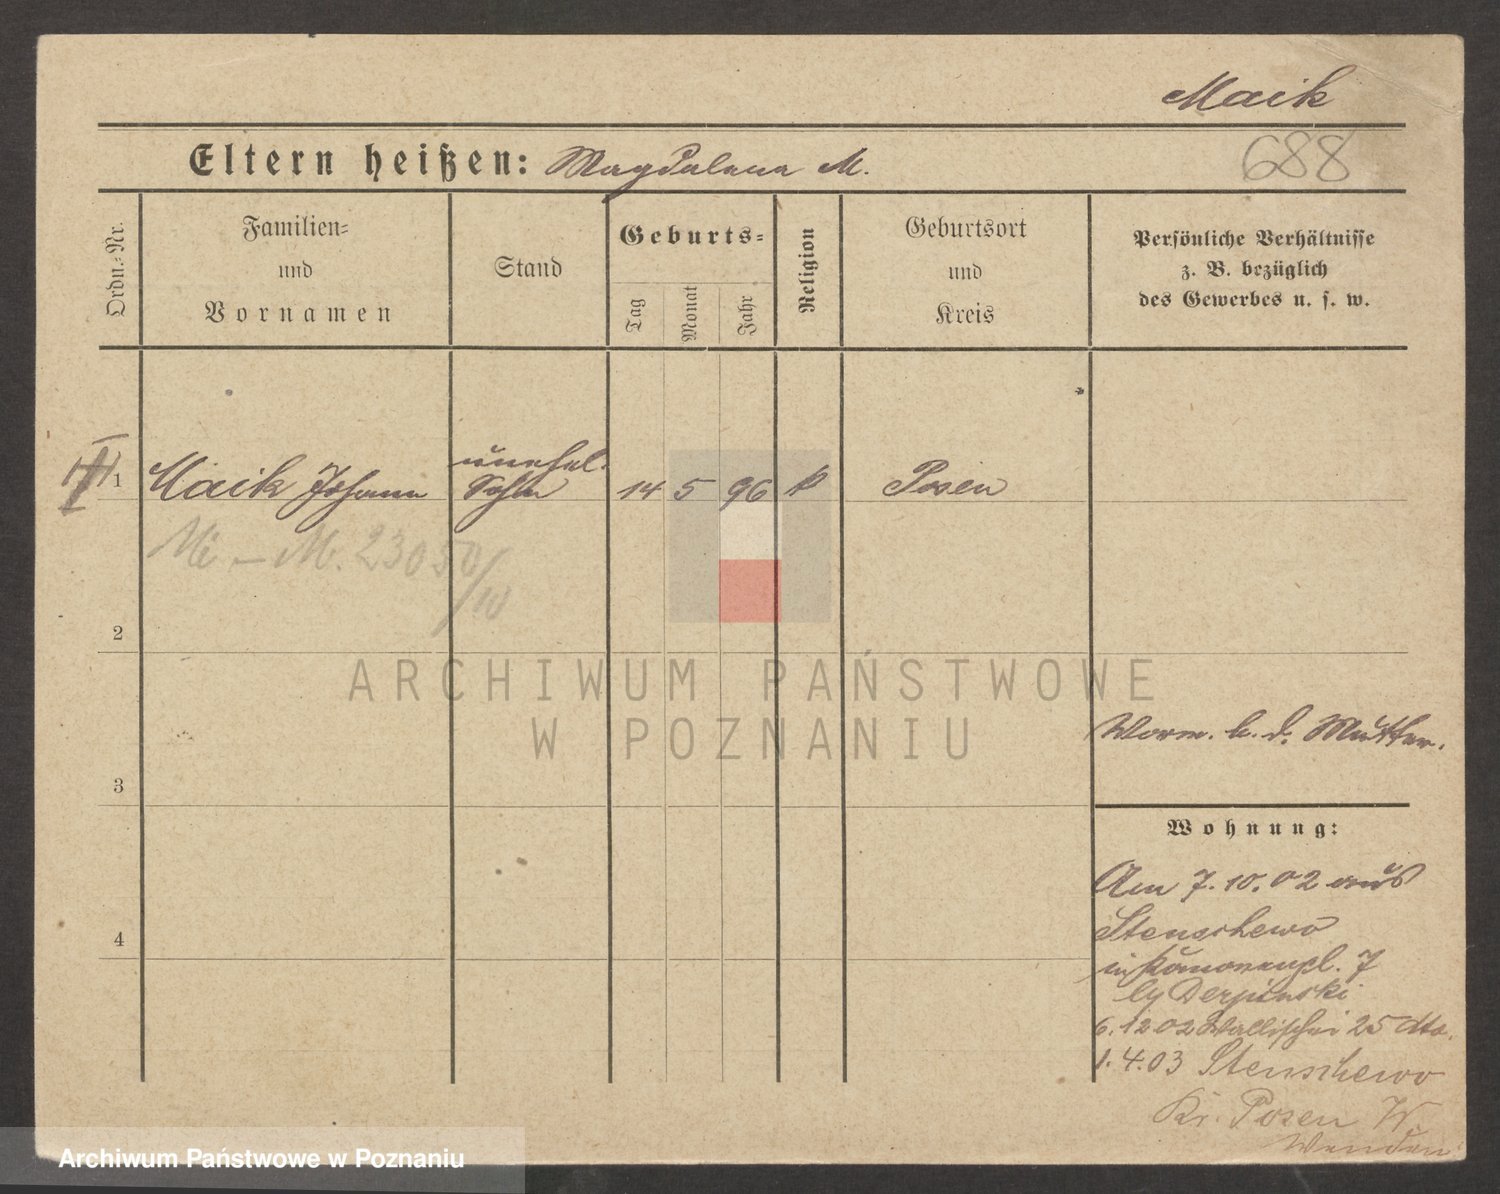 Maik
Eltern heißen: Magdalena M.
688
Ordn.-Nr.
Familien-
und
Vornamen
Stand
Geburts-
Tag
Monat
Jahr
Religion
Geburtsort
und
Kreis
Persönliche Verhältnisse
z. B. bezüglich
des Gewerbes u. s. w.
unehel.
1 Maik Johann Sohn 14 5 96 k Posen
M. 23050/
2
ARCHIWUM PAŃSTWOWE
W POZNANIU
Vorm. h. d. Mutter.
3
Wohnung:
Am 7.10.02 aus
Stenschewo
in 7
4
by
6.12 02 Wallischei 25 dto.
1.4.03 Stenschewo
Kr. Posen W
Archiwum Państwowe w Poznaniu